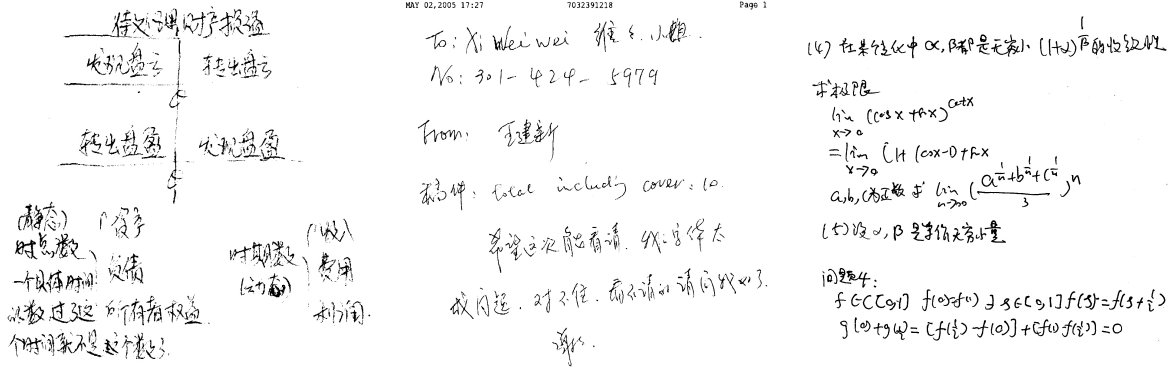 待处理财产损溢
发现盘亏 转出盘亏
转出盘盈 发现盘盈
(静态) 资产
时点数 负债
一个具体时间
过了这 所有者权益
个时间就不是这个数了
时期数 收入
(动态) 费用
利润
MAY 02,2005 17:27 7032391218 Page 1
To: Xi Weiwei 小姐
No: 301-424-5979
From: 王建新
稿件: total including cover: 10.
希望这次能看清. 我的字体太
成问题. 对不住. 看不清的请问我如了.
谢谢.
(4) 在某过程中 α, β都是无穷小 (1+α)^{1/β} 的收敛性
求极限
lim x→0 (cosx + sinx)^{cotx}
= lim x→0 [1+(cosx-1)+sinx
a,b,c为正数 求 lim n→∞ ((a^{1/n}+b^{1/n}+c^{1/n})/3)^n
(5) 设α, β是等价无穷小量
问题4:
f∈C[0,1] f(0)=f(1) ∃ξ∈[0,1] f(ξ)=f(ξ+1/2)
g(0)+g(1/2)=[f(1/2)-f(0)]+[f(1)-f(1/2)]=0